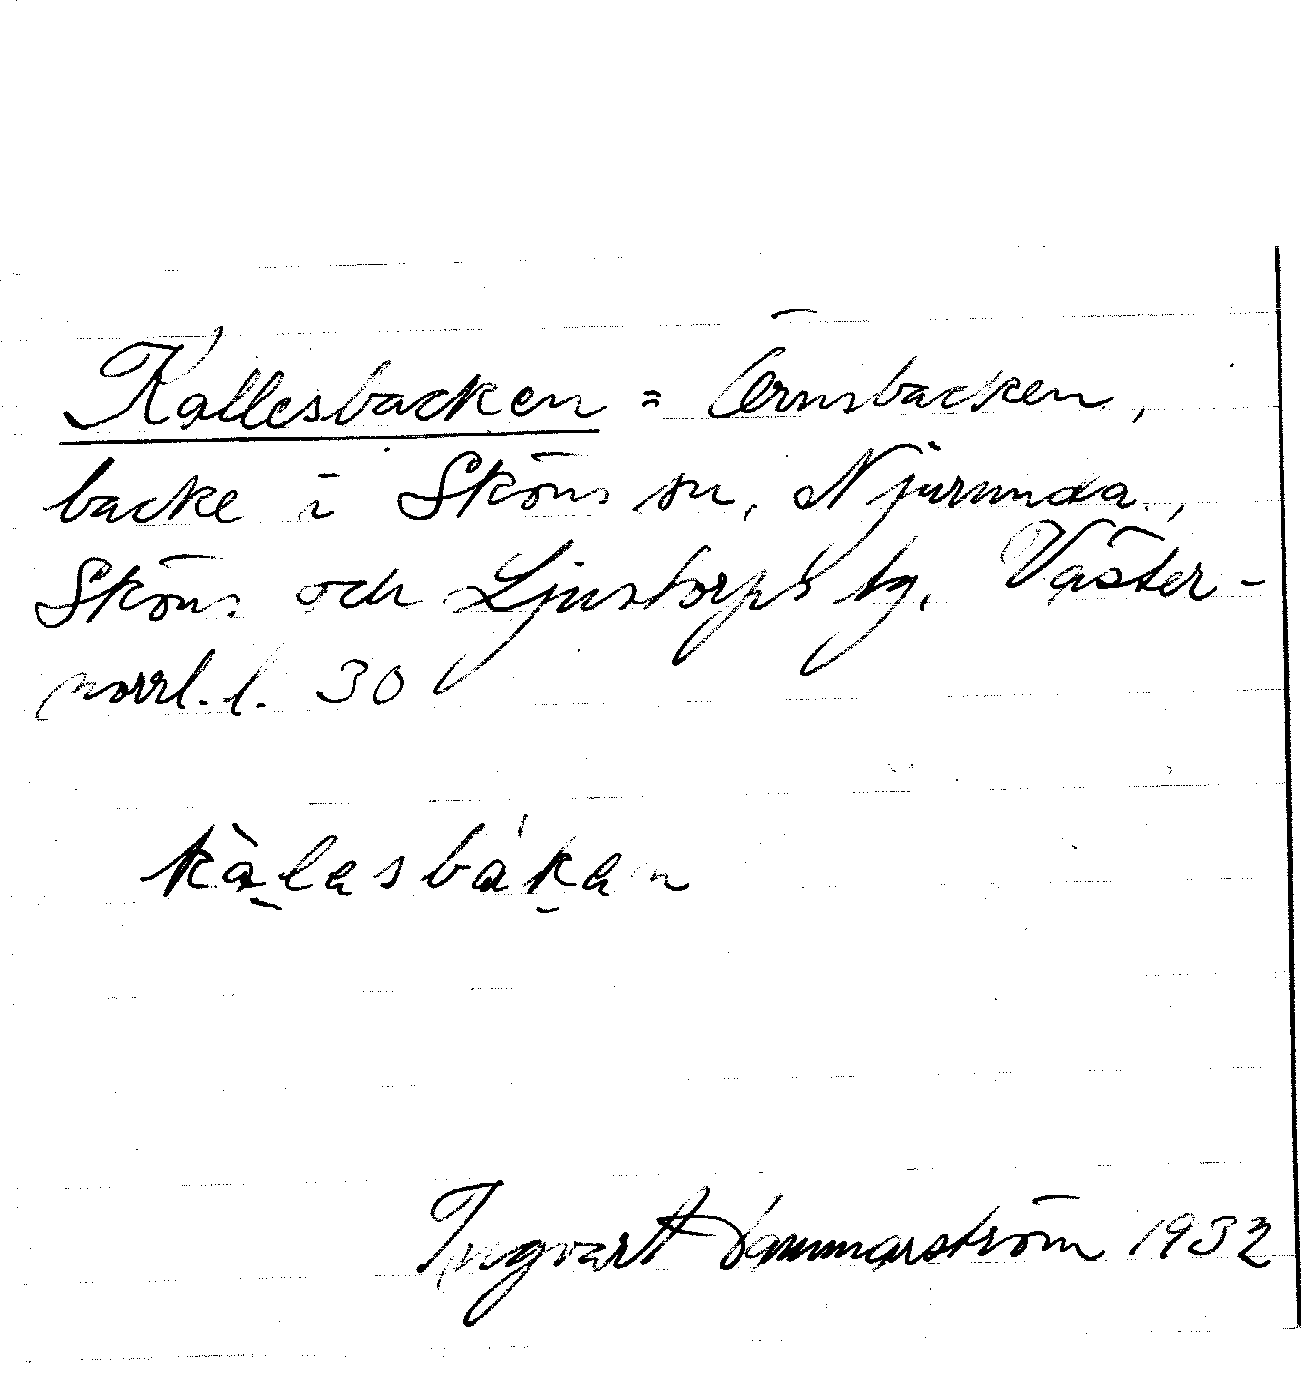 Kallesbacken = Örnsbacken,
backe i Sköns sn, Njurunda,
Sköns och Ljustorps tg, Väster-
norrl. l. 30
kàlasbákan
Ingvart Hammarström 1932